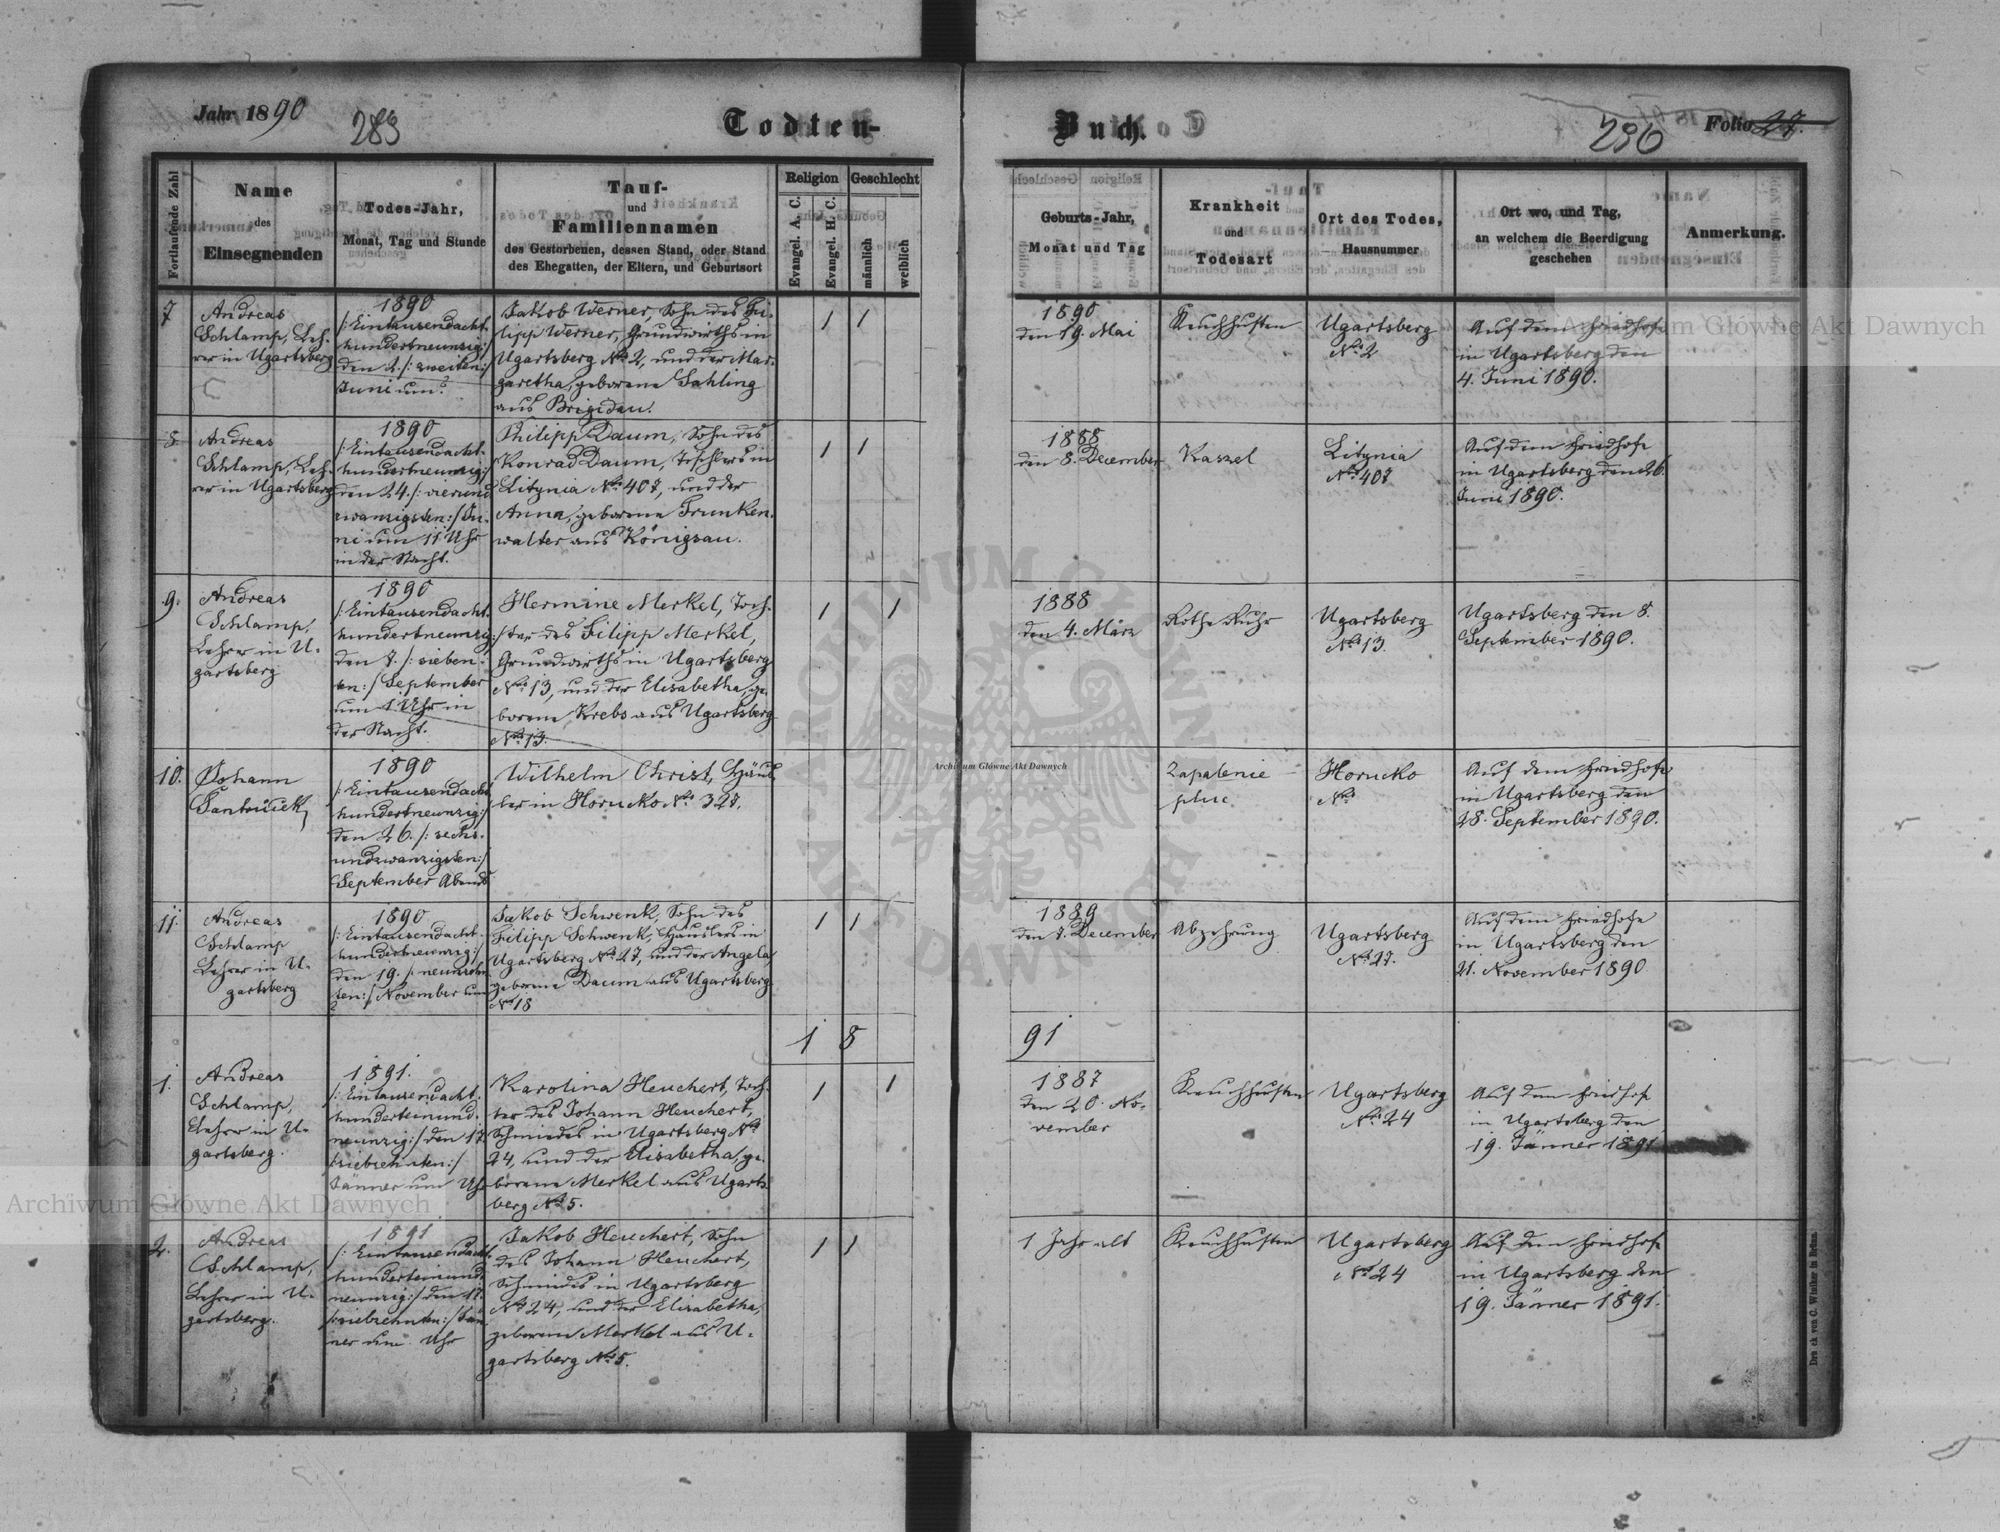 Jahr 1890
283
Todten-
Buch.
286
Folio 27.
Fortlaufende Zahl
Name
des
Einsegnenden
Todes-Jahr,
Monat, Tag und Stunde
Tauf-
und
Familiennamen
des Gestorbenen, dessen Stand, oder Stand
des Ehegatten, der Eltern, und Geburtsort
Religion
Evangel. A. C.
Evangel. H. C.
Geschlecht
männlich
weiblich
Geburts-Jahr,
Monat und Tag
Krankheit
und
Todesart
Ort des Todes,
Hausnummer
Ort wo, und Tag,
an welchem die Beerdigung
geschehen
Anmerkung.
7
Andreas
Schlamp, Leh-
rer in Ugartsberg
1890
/: Eintausendacht-
hundertneunzig :/
den 2. /: zweiten :/
Juni um
Jakob Werner, Sohn des Fi-
lipp Werner, Grundwirths in
Ugartsberg No 2, und der Mar-
garetha, geborene Sahling
aus Brigidau.
1 1
1890
den 19. Mai
Keuchhusten
Ugartsberg
No 2
Auf dem Friedhofe
in Ugartsberg den
4. Juni 1890.
8.
Andreas
Schlamp, Leh-
rer in Ugartsberg
1890
/: Eintausendacht-
hundertneunzig :/
den 24. /: vierund
zwanzigsten :/ Ju-
ni um 11 Uhr
in der Nacht.
Philipp Daum, Sohn des
Konrad Daum, Tischlers in
Litynia No 407, und der
Anna, geborene Trunken-
walter aus Königsau.
1 1
1888
den 8. December
Kaszel
Litynia
No 407
Auf dem Friedhofe
in Ugartsberg den 26.
Juni 1890.
9.
Andreas
Schlamp,
Lehrer in U-
gartsberg
1890
/: Eintausendacht-
hundertneunzig :/
den 7. /: sieben-
ten :/ September
um 1 Uhr in
der Nacht.
Hermine Merkel, Toch-
ter des Filipp Merkel,
Grundwirths in Ugartsberg
No 13, und der Elisabetha, ge-
borene Krebs aus Ugartsberg
No 13.
1 1
1888
den 4. März
Rothe Ruhr
Ugartsberg
No 13.
Ugartsberg den 8.
September 1890.
10.
Johann
1890
/: Eintausendacht-
hundertneunzig :/
den 26. /: sechs-
undzwanzigsten :/
September Abends
Wilhelm Christ, Häus-
ler in Horucko No 327.
Zapalenie
płuc
Horucko
No
Auf dem Friedhofe
in Ugartsberg den
28. September 1890.
11.
Andreas
Schlamp
Lehrer in U-
gartsberg
1890
/: Eintausendacht-
hundertneunzig :/
den 19. /: neunzehn-
ten :/ November um
Jakob Schwenk, Sohn des
Filipp Schwenk, Häuslers in
Ugartsberg No 27, und der Angela,
geborene Daum aus Ugartsberg
No 18
1 1
1889
den 7. December
Abzehrung
Ugartsberg
No 27.
Auf dem Friedhofe
in Ugartsberg den
21. November 1890
1 8
91
1.
Andreas
Schlamp,
Lehrer in U-
gartsberg.
1891.
/: Eintausendacht-
hunderteinund-
neunzig :/ den 17.
/: siebzehnten :/
Jänner um Uhr
Karolina Heuchert, Toch-
ter des Johann Heuchert,
Schmiedes in Ugartsberg No
24, und der Elisabetha, ge-
borene Merkel aus Ugarts-
berg No 5.
1 1
1887
den 20. No-
vember
Keuchhusten
Ugartsberg
No 24
Auf dem Friedhofe
in Ugartsberg den
19. Jänner 1891
2.
Andreas
Schlamp,
Lehrer in U-
gartsberg.
1891
/: Eintausendacht-
hunderteinund-
neunzig :/ den 17.
/: siebzehnten :/ Jän-
ner um Uhr
Jakob Heuchert, Sohn
des Johann Heuchert,
Schmides in Ugartsberg
No 24, und der Elisabetha,
geborene Merkel aus U-
gartsberg No 5.
1 1
1 Jahr alt
Keuchhusten
Ugartsberg
No 24
Auf dem Friedhofe
in Ugartsberg den
19. Jänner 1891.
Druck von C. Winiker in Brünn.
Archiwum Główne Akt Dawnych
Archiwum Główne Akt Dawnych
Archiwum Główne Akt Dawnych
ARCHIWUM GŁÓWNE AKT DAWNYCH